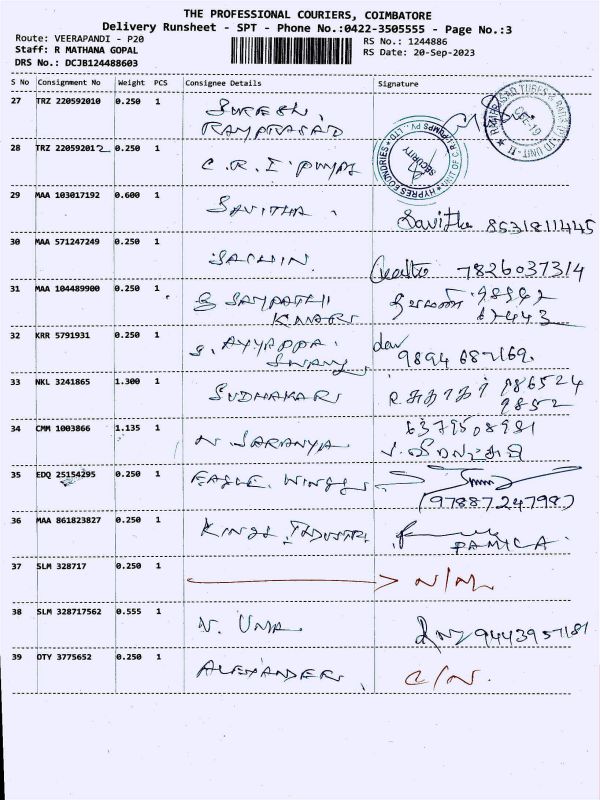 THE PROFESSIONAL COURIERS, COIMBATORE
Delivery Runsheet - SPT - Phone No.:0422-3505555 - Page No.:3
Route: VEERAPANDI - P20
Staff: R MATHANA GOPAL
DRS No.: DCJB124488603
RS No.: 1244886
RS Date: 20-Sep-2023
S No Consignment No Weight PCS Consignee Details Signature
27 TRZ 220592010 0.250 1 SURESH.
RAMPRASAD
28 TRZ 220592012 0.250 1 C.R.I PUMPS
SECURITY
29 MAA 103017192 0.600 1 SAVITHA. Savitha 8531811445
30 MAA 571247249 0.250 1 SACHIN. 7826037314
31 MAA 104489900 0.250 1 SAMPATH
KUMAR
32 KRR 5791931 0.250 1 S. AYYAPPA
SWAMY 9894687169.
33 NKL 3241865 1.300 1 SUDHAKAR 986524
9852
34 CMM 1003866 1.135 1 N SARANYA 6379508981
35 EDQ 25154295 0.250 1 EAGLE WINGS
(9788724798)
36 MAA 861823827 0.250 1 KINGS
PAMILA
37 SLM 328717 0.250 1 N/M
38 SLM 328717562 0.555 1 N. UMA 9443957181
39 OTY 3775652 0.250 1 ALEXANDER C/N.